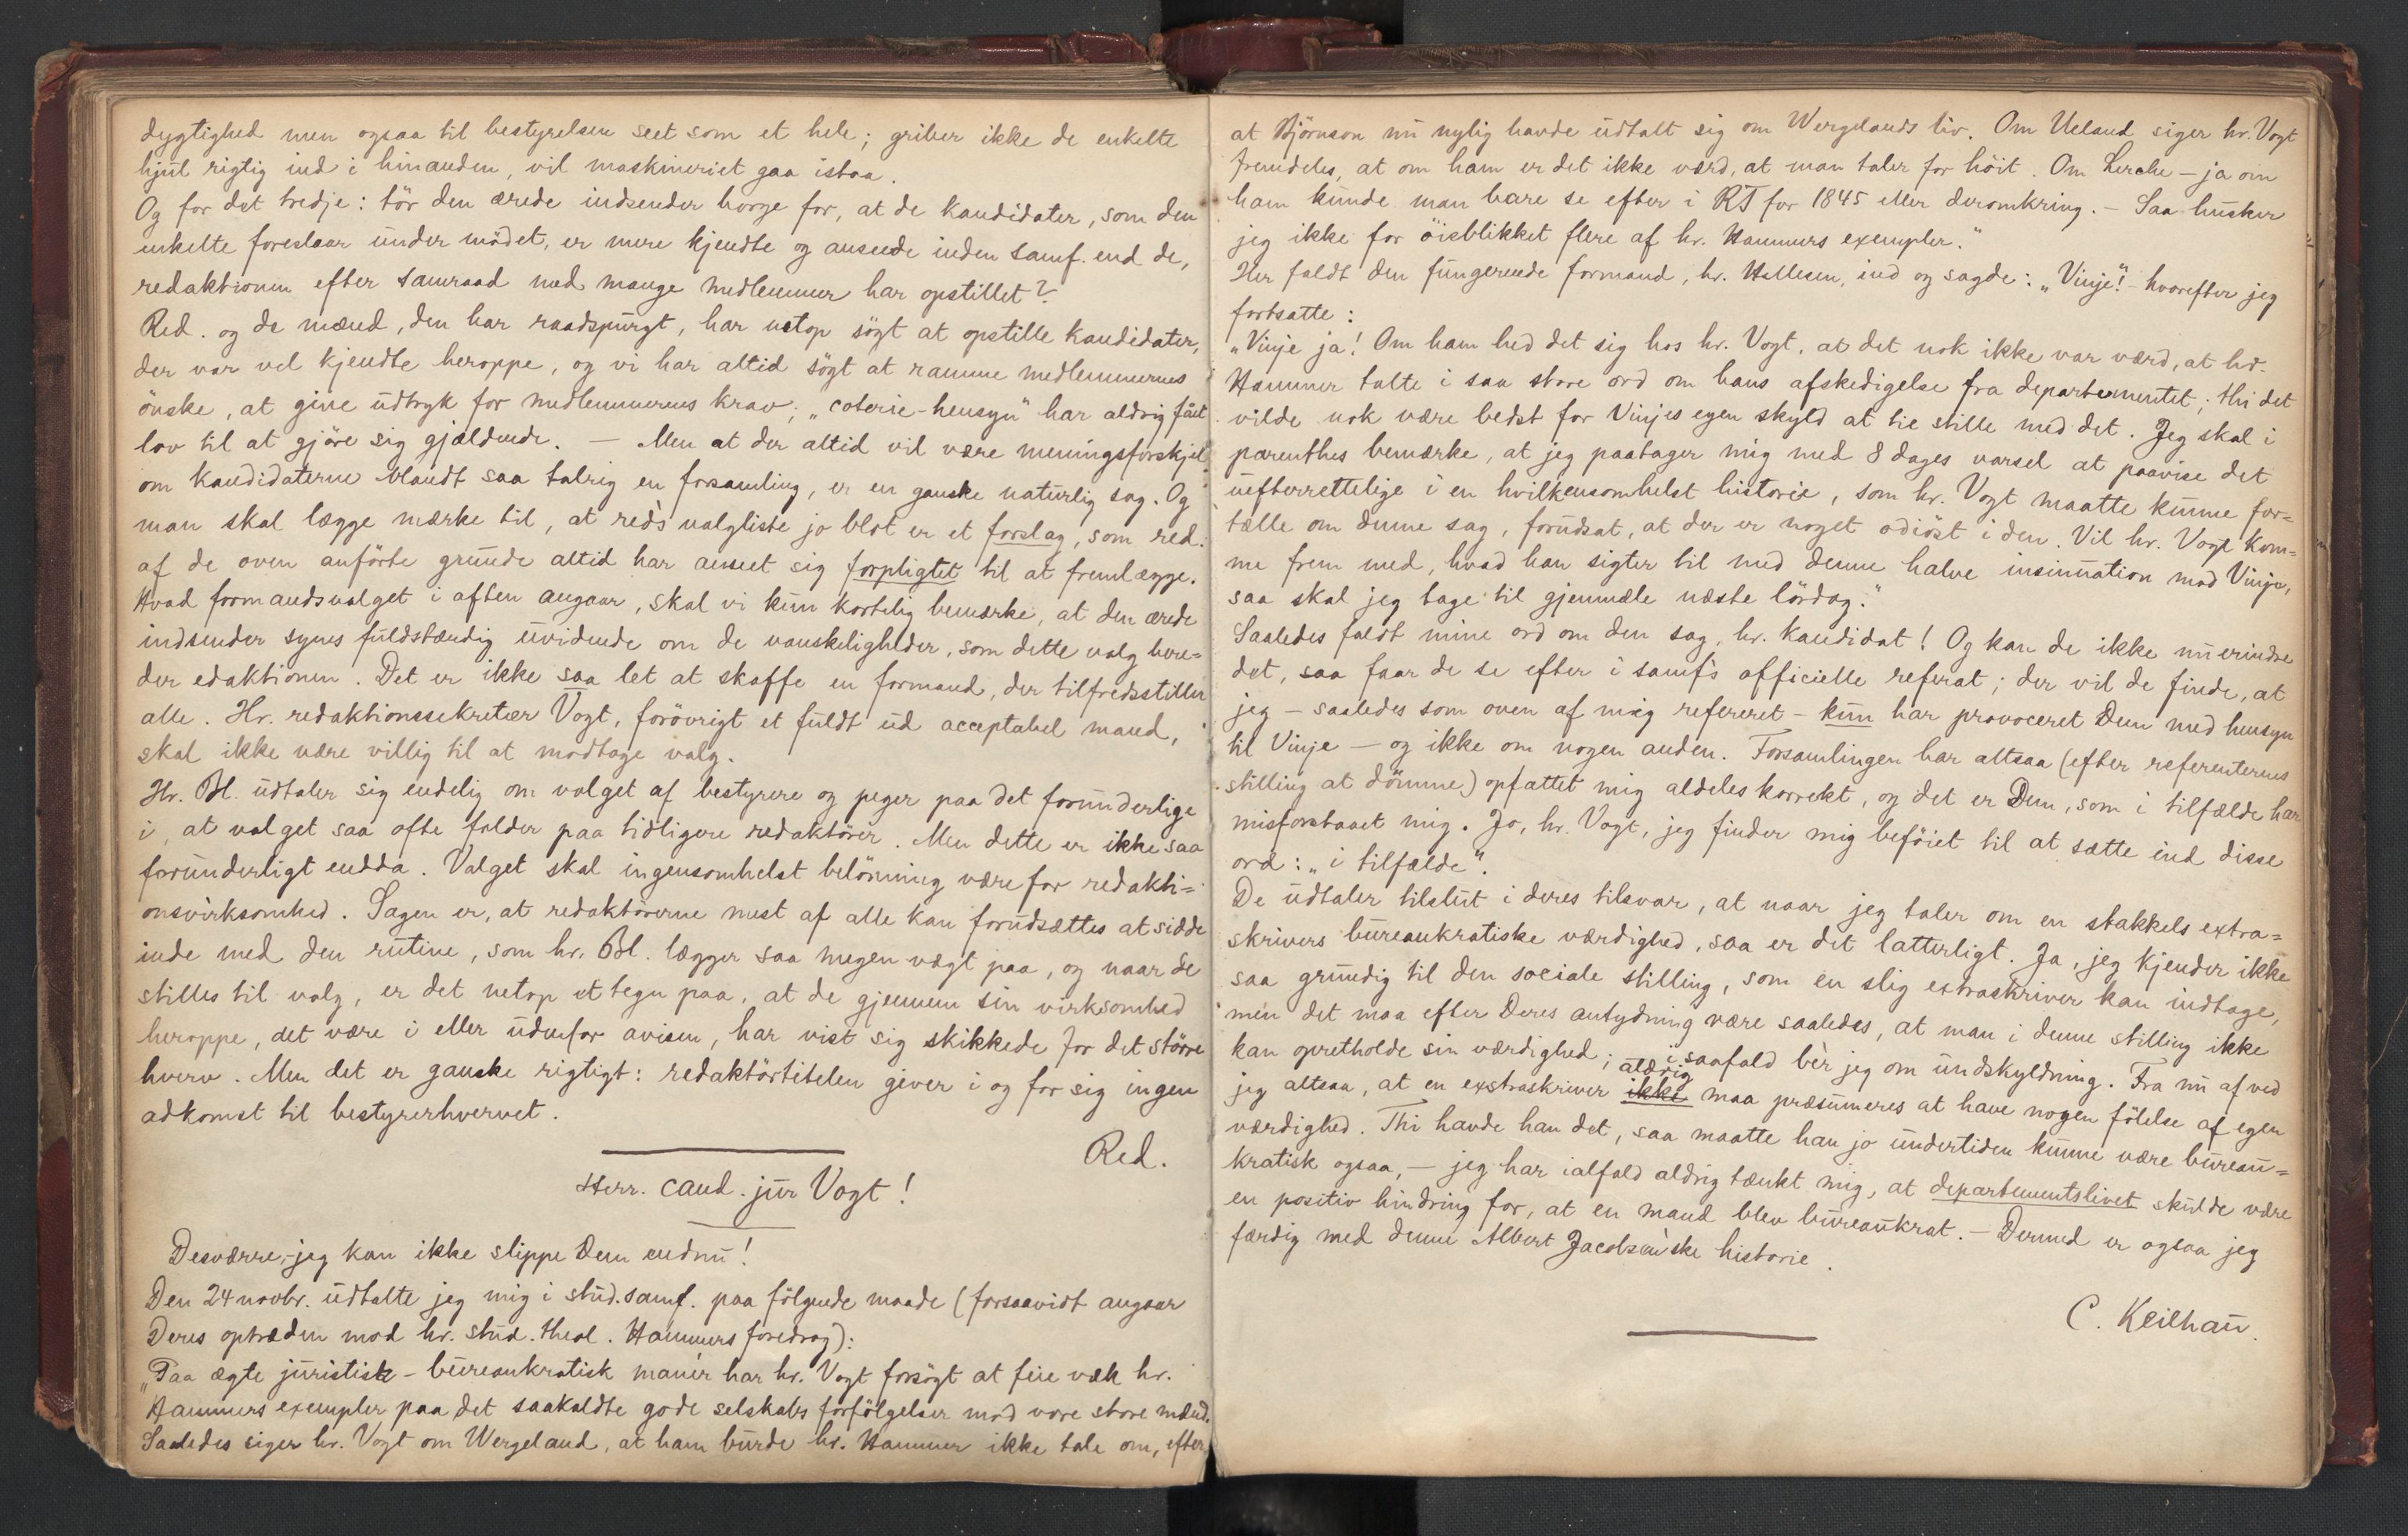 dygtighed men ogsaa til bestyrelsen seet som et hele; griber ikke de enkelte
hjul rigtig ind i hinanden, vil maskineriet gaa istaa.
Og for det tredje: tör den ærede indsender borge for, at de kandidater, som den
enkelte foreslaar under mödet, er mere kjendte og ansede inden samf. end de,
redaktionen efter samraad med mange medlemmer har opstillet?
Red. og de mænd, den har raadspurgt, har netop sögt at opstille kandidater,
der var vel kjendte heroppe, og vi har altid sögt at ramme medlemmernes
önske, at give udtryk for medlemmernes krav; „coterie-hensyn" har aldrig fået
lov til at gjöre sig gjældende. — Men at der altid vil være meningsforskjel
om kandidaterne blandt saa talrig en forsamling, er en ganske naturlig sag. Og
man skal lægge mærke til, at red's valgliste jo blot er et forslag, som red.
af de oven anförte grunde altid har anseet sig forpligtet til at fremlægge.
Hvad formandsvalget i aften angaar, skal vi kun kortelig bemærke, at den ærede
indsender synes fuldstændig uvidende om de vanskeligheder, som dette valg bere-
der edaktionen. Det er ikke saa let at skaffe en formand, der tilfredsstiller
alle. Hr. redaktionssekretær Vogt, forövrigt et fuldt ud acceptabel mand,
skal ikke være villig til at modtage valg.
Hr. Bl. udtaler sig endelig om valget af bestyrere og peger paa det forunderlige
i, at valget saa ofte falder paa tidligere redaktörer. Men dette er ikke saa
forunderligt endda. Valget skal ingensomhelst belönning være for redakti-
onsvirksomhed. Sagen er, at redaktörerne mest af alle kan forudsættes at sidde
inde med den rutine, som hr. Bl. lægger saa megen vægt paa, og naar de
stilles til valg, er det netop et tegn paa, at de gjennem sin virksomhed
heroppe, det være i eller udenfor avisen, har vist sig skikkede for det större
hverv. Men det er ganske rigtigt: redaktörtitelen giver i og for sig ingen
adkomst til bestyrerhvervet.
Red.
Herr. cand. jur Vogt!
Desværre, jeg kan ikke slippe Dem endnu!
Den 24 novbr. udtalte jeg mig i stud. samf. paa fölgende maade (forsaavidt angaar
Deres optræden mod hr. stud. theol. Hammers foredrag):
„Paa ægte juristisk-bureaukratisk manér har hr. Vogt forsögt at feie væk hr.
Hammers exempler paa det saakaldte gode selskabs forfölgelser mod vore store mænd.
Saaledes siger hr. Vogt om Wergeland, at ham burde hr. Hammer ikke tale om, efter
at Björnson nu nylig havde udtalt sig om Wergelands liv. Om Ueland siger hr. Vogt
fremdeles, at om ham er det ikke værd, at man taler for höit. Om Lerche – ja om
ham kunde man bare se efter i RT for 1845 eller deromkring. – Saa husker
jeg ikke for öieblikket flere af hr. Hammers exempler."
Her faldt den fungerende formand, hr. Hallesen, ind og sagde: „Vinje"! – hvorefter jeg
fortsatte:
„Vinje ja! Om ham hed det sig hos hr. Vogt, at det nok ikke var værd, at hr.
Hammer talte i saa store ord om hans afskedigelse fra departementet; thi det
vilde nok være bedst for Vinjes egen skyld at tie stille med det. Jeg skal i
parenthes bemærke, at jeg paatager mig med 8 dages varsel at paavise det
uefterrettelige i en hvilkensomhelst historie, som hr. Vogt maatte kunne for-
tælle om denne sag, forudsat, at der er noget odiöst i den. Vil hr. Vogt kom-
me frem med, hvad han sigter til med denne halve insinuation mod Vinje,
saa skal jeg tage til gjenmæle næste lördag."
Saaledes faldt mine ord om den sag, hr. kandidat! Og kan de ikke nu erindre
det, saa faar de se efter i samf's officielle referat; der vil de finde, at
jeg – saaledes som oven af mig refereret – kun har provoceret Dem med hensyn
til Vinje — og ikke om nogen anden. Forsamlingen har altsaa (efter referenternes
stilling at dömme) opfattet mig aldeles korrekt, og det er Dem, som i tilfælde har
misforstaaet mig. Jo, hr. Vogt, jeg finder mig beföiet til at sætte ind disse
ord: „i tilfælde".
De udtaler tilslut i deres tilsvar, at naar jeg taler om en stakkels extra-
skrivers bureaukratiske værdighed, saa er det latterligt. Ja, jeg kjender ikke
saa grundig til den sociale stilling, som en slig extraskriver kan indtage,
men det maa efter Deres antydning være saaledes, at man i denne stilling ikke
kan opretholde sin værdighed; i saafald bèr jeg om undskyldning. Fra nu af ved
jeg altsaa, at en exstraskriver ikke aldrig maa præsumeres at have nogen fölelse af egen
værdighed. Thi havde han det, saa maatte han jo undertiden kunne være bureau-
kratisk ogsaa, – jeg har ialfald aldrig tænkt mig, at departementslivet skulde være
en positiv hindring for, at en mand blev bureaukrat. – Dermed er ogsaa jeg
færdig med denne Albert Jacobsen'ske historie.
C. Keilhau.